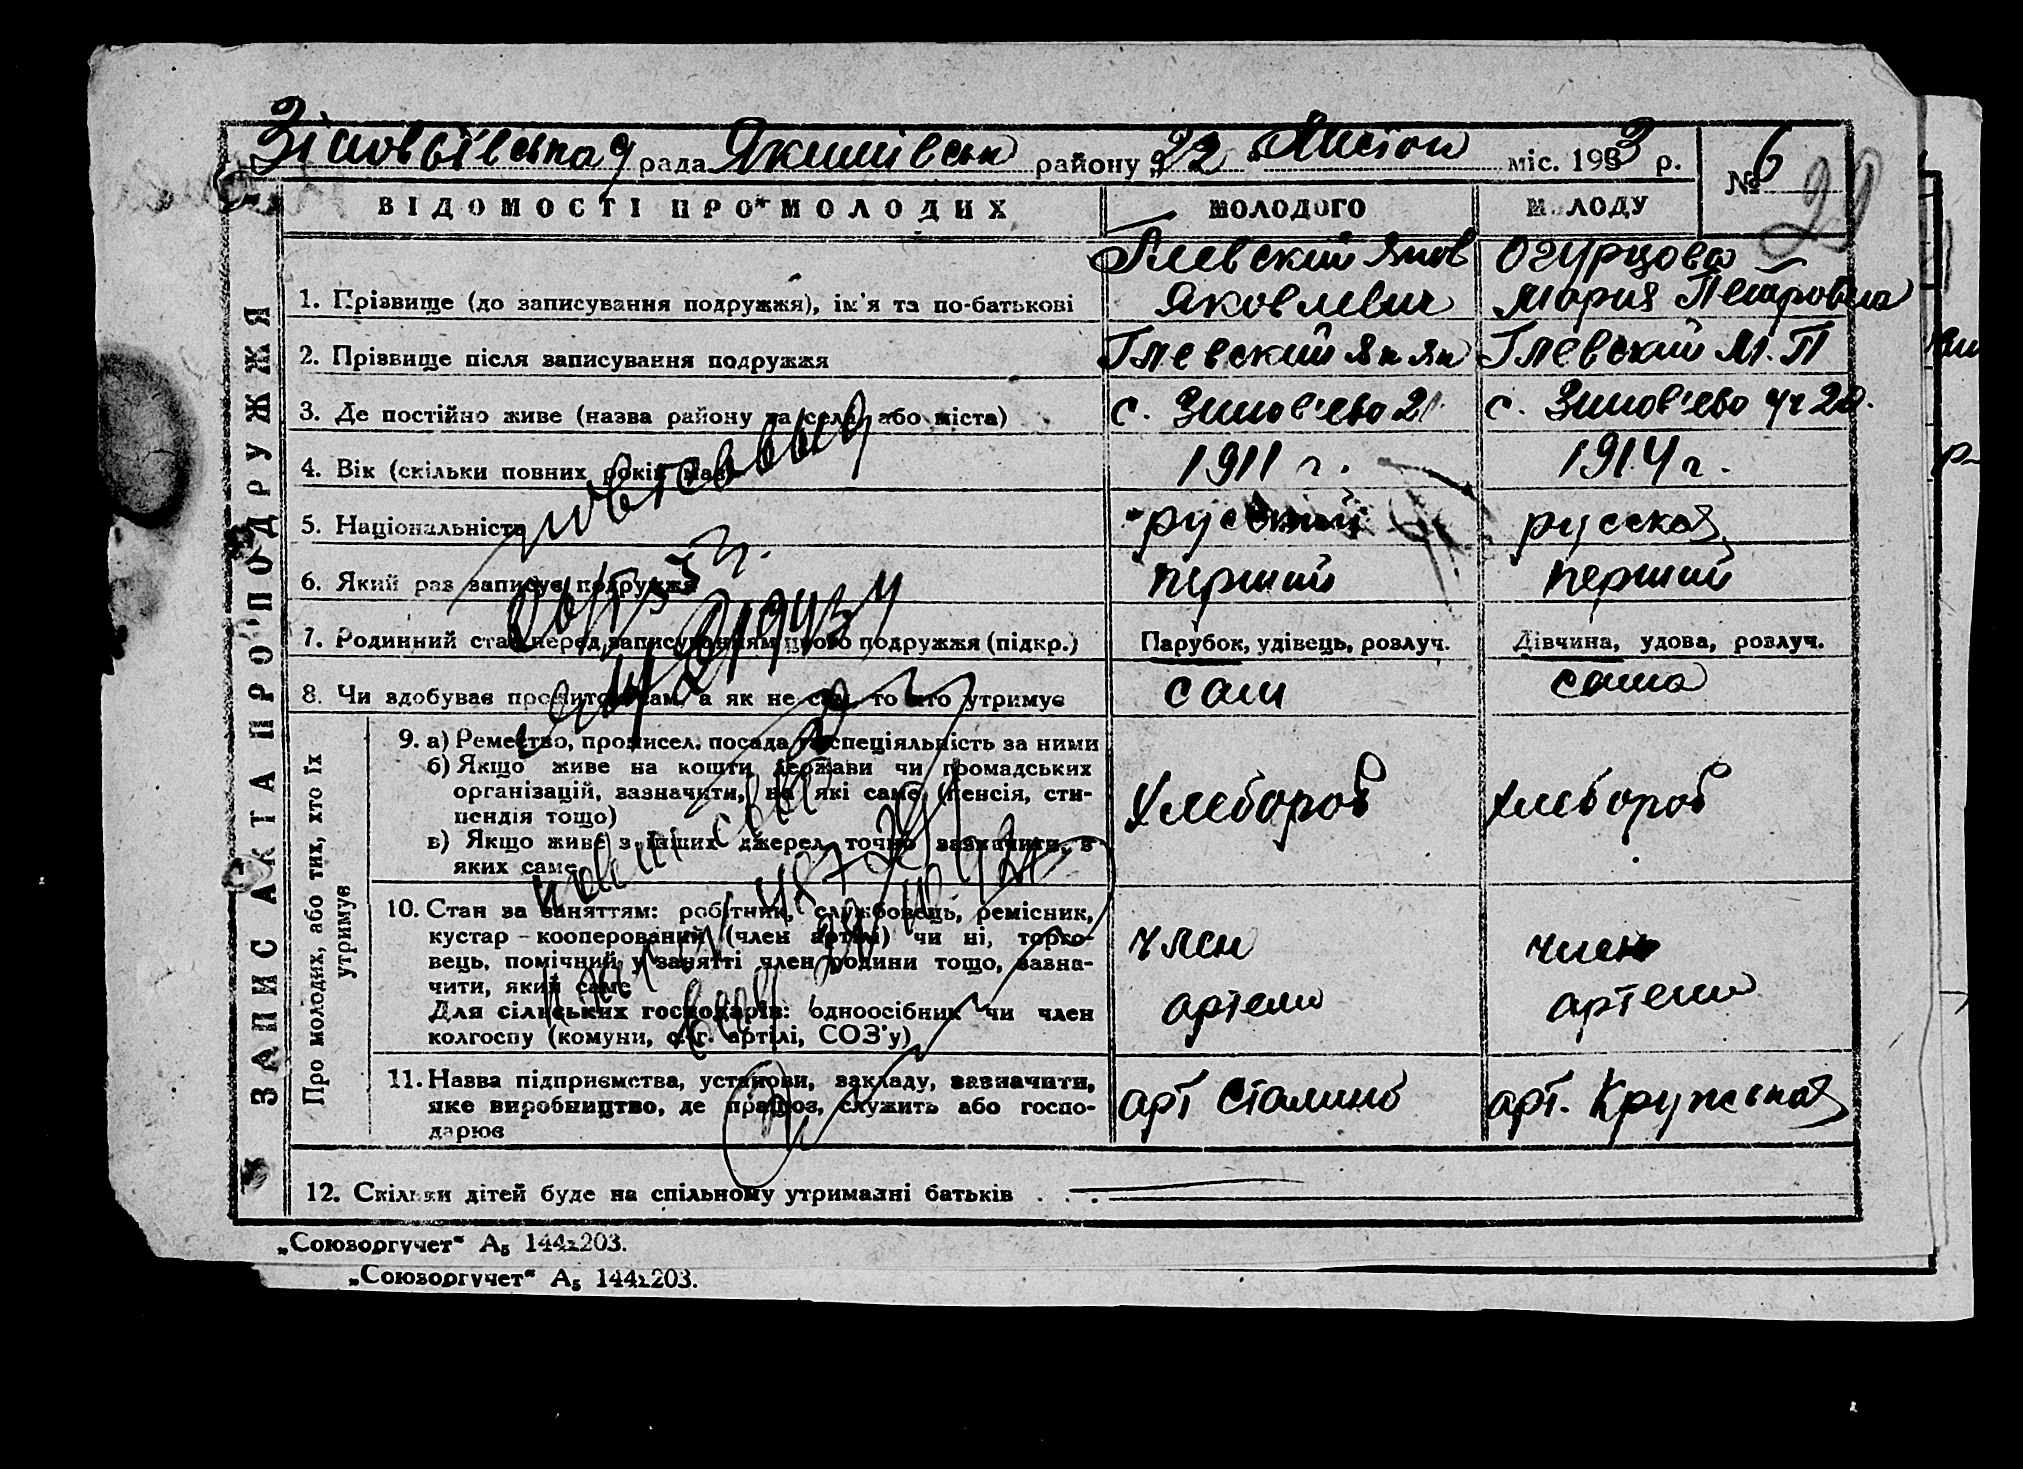 Зіновьївська рада Якимівськ району „22 Листоп міс. 1933 р. № 6
20
ВІДОМОСТІ ПРО МОЛОДИХ МОЛОДОГО МОЛОДУ
ЗАПИС АКТА ПРО ПОДРУЖЖЯ
1. Прізвище (до записування подружжя), ім'я та по-батькові Глевский Яков Яковлевич Огурцова Мария Петровна
2. Прізвище після записування подружжя Глевский Як Як Глевский М. П
3. Де постійно живе (назва району та села або міста) с. Зинов'ево 2 с. Зинов'ево уч 20.
4. Вік (скільки повних років має) 1911 г. 1914 г.
5. Національність русский русская
6. Який раз записує подружжя перший перший
7. Родинний стан перед записуванням цього подружжя (підкр.) Парубок, удівець, розлуч. Дівчина, удова, розлуч.
8. Чи здобуває прожиток сам, а як не сам, то хто утримує сам сама
Про молодих, або тих, хто їх утримує
9. а) Ремество, промисел, посада та спеціяльність за ними
б) Якщо живе на кошти держави чи громадських
організацій, зазначити, на які саме (пенсія, сти-
пендія тощо)
в) Якщо живе з інших джерел, точно зазначити, з
яких саме
Хлебороб хлебороб
10. Стан за заняттям: робітник, службовець, ремісник,
кустар – кооперований (член артілі) чи ні, торго-
вець, помічний у занятті член родини тощо, зазна-
чити, який саме
Для сільських господарів: одноосібник чи член
колгоспу (комуни, с.-г. артілі, СОЗ'у)
член артели член артели
11. Назва підприємства, установи, закладу, зазначити,
яке виробництво, де працює, служить або госпо-
дарює
арт Сталино арт.
12. Скільки дітей буде на спільному утриманні батьків . . .
„Союзоргучет“ А₅ 144х203.
„Союзоргучет“ А₅ 144х203.